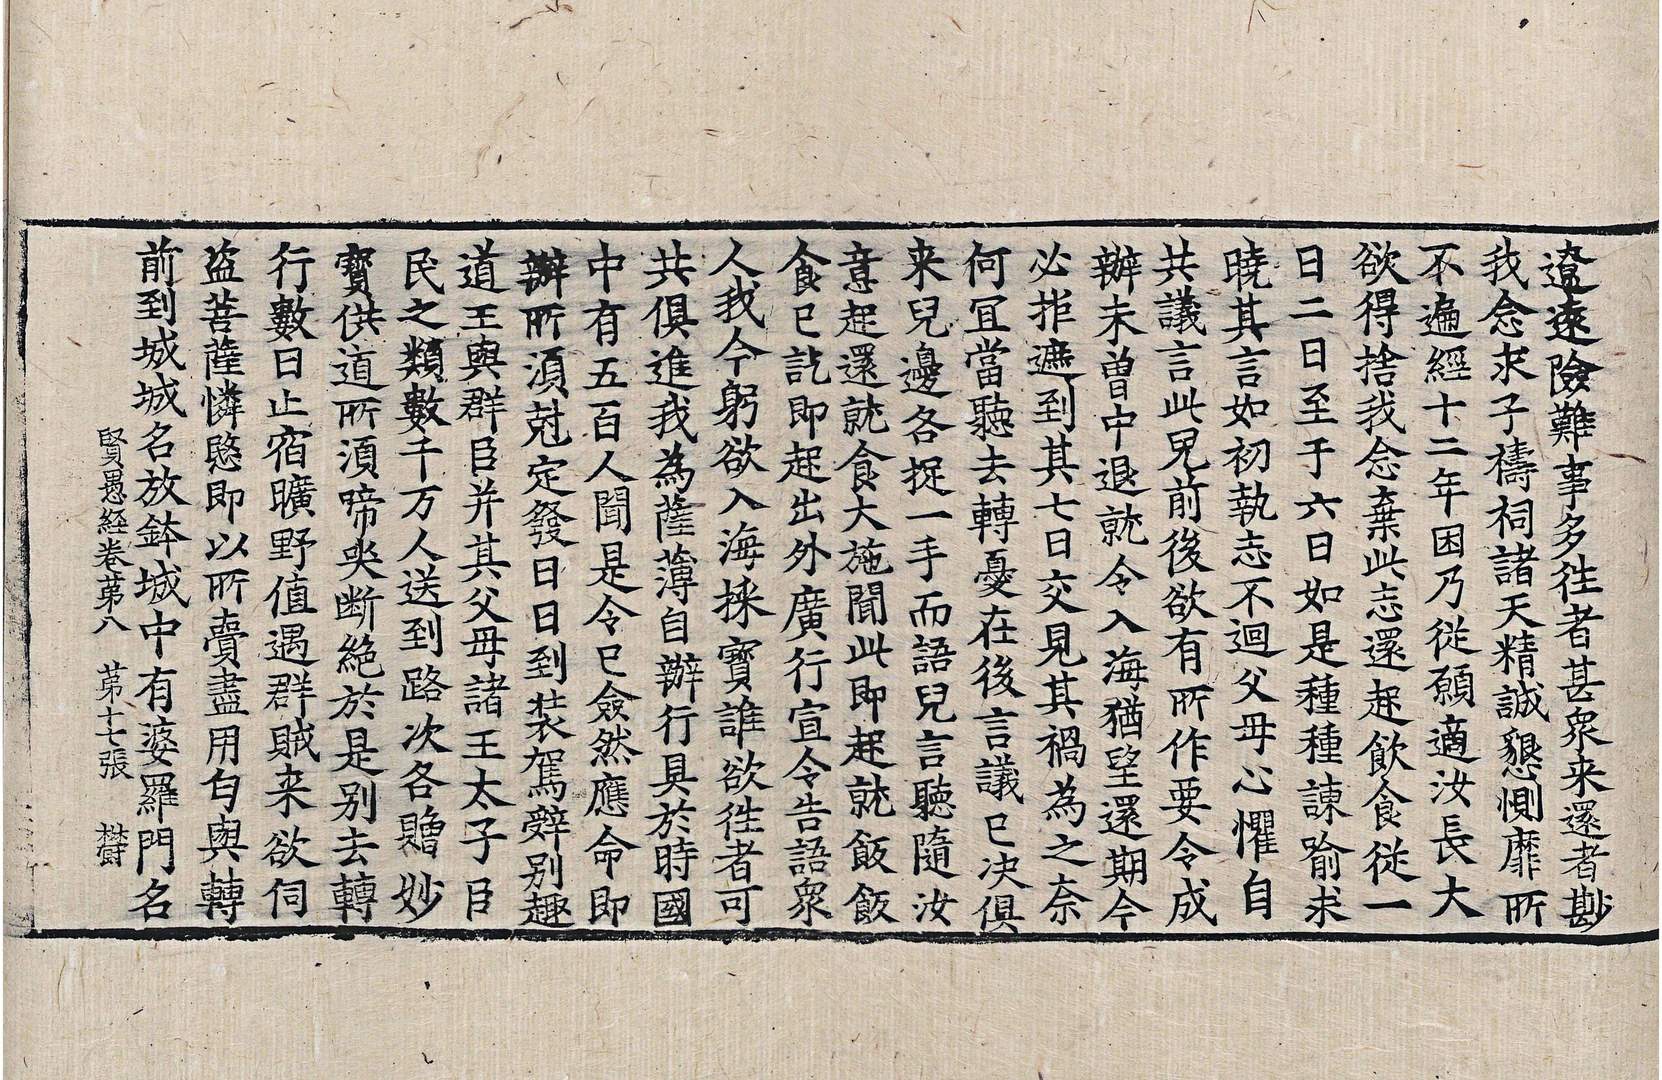 遼遠險難事多徃者甚衆来還者尠
我念求子禱祠諸天精誠懇惻靡所
不遍經十二年因乃従願適汝長大
欲得捨我念棄此志還起飲食従一
日二日至于六日如是種種諫喻求
曉其言如初執志不迴父母心懼自
共議言此兒前後欲有所作要令成
辦未曾中退就令入海猶望還期今
必拒遮到其七日交見其禍為之奈
何冝當聽去轉憂在後言議已决俱
来兒邊各捉一手而語兒言聽隨汝
意起還就食大施聞此即起就飯飯
食已訖即起出外廣行宣令告語衆
人我今躬欲入海採寶誰欲徃者可
共俱進我為薩薄自辦行具於時國
中有五百人聞是令已僉然應命即
辦所湏尅定發日日到裝駕辭別趣
道王與群臣并其父母諸王太子臣
民之類數千万人送到路次各贈妙
寶供道所湏啼哭断絶於是別去轉
行數日止宿曠野值遇群賊来欲伺
盗菩薩憐愍即以所賷盡用匄與轉
前到城城名放鉢城中有婆羅門名
賢愚經卷苐八　苐十七張　欝